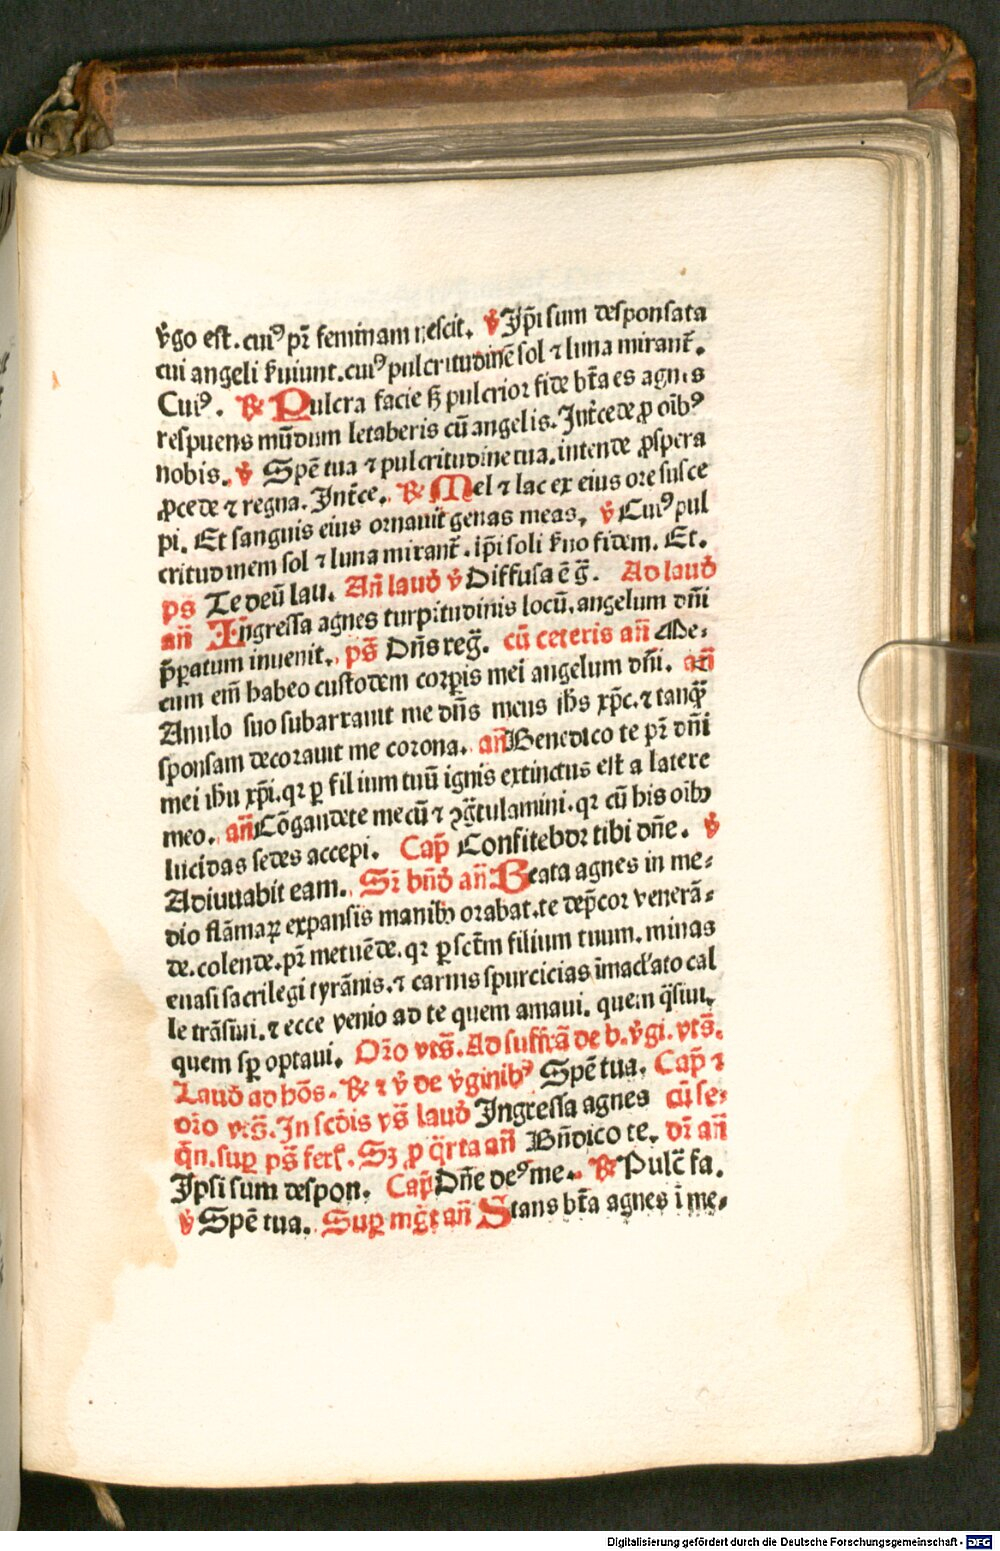 v̄go est. cuiꝰ pr̄ feminam nescit. ℣ Jp̄i sum desponsata
cui angeli ẜuiunt. cuiꝰ pulcritudinē sol ⁊ luna mirant̄.
Cuiꝰ. ℞ Pulcra facie ß pulcrior fide bt̄a es agnes
respuens mūdum letaberis cū angelis. Jnt̄cede ꝓ oībꝰ
nobis. ℣ Spē tua ⁊ pulcritudine tua. intende ꝓspera
ꝓcede ⁊ regna. Jnt̄ce. ℞ Mel ⁊ lac ex eius ore susce
pi. Et sanguis eius ornauit genas meas. ℣ Cuiꝰ pul
critudinem sol ⁊ luna mirant̄. ip̄i soli ẜuo fidem. Et.
ps̄ Te deū lau. Añ laud̄ ℣ Diffusa ē ḡ. Ad laud̄
añ Jngressa agnes turpitudinis locū. angelum dn̄i
p̄paratum inuenit. ps̄ Dn̄s reḡ. cū ceteris añ Me⸗
cum em̄ habeo custodem corꝑis mei angelum dn̄i. añ
Anulo suo subarrauit me dn̄s meus ihs xp̄c. ⁊ tanq̄
sponsam decorauit me corona. añ Benedico te pr̄ dn̄i
mei ihu xp̄i. qr ꝑ filium tuū ignis extinctus est a latere
meo. añ Cōgaudete mecū ⁊ ꝯḡtulamini. qr cū his oībꝫ
lucidas sedes accepi. Cap̄ Confitebor tibi dn̄e. ℣
Adiuuabit eam. Sr̄ bn̄d̄ añ Beata agnes in me⸗
dio flāmaꝝ expansis manibꝫ orabat. te dep̄cor venerā⸗
de. colende. pr̄ metuēde. qr ꝑ sct̄m filium tuum. minas
euasi sacrilegi tyrānis. ⁊ carnis spurcicias īmacl̓ato cal
le trāsiui. ⁊ ecce venio ad te quem amaui. quem q̄siui.
quem sꝑ optaui. Or̄o vts̄. Ad suffrā de b. v̄gi. vts̄.
Laud̄ ad hōs. ℞ ⁊ ℣ de v̄ginibꝰ Spē tua. Cap̄ ⁊
or̄o vts̄. Jn scd̄is vs̄ laud̄ Jngressa agnes cū se⸗
q̄n. suꝑ ps̄ ferl̓. Sꝫ ꝓ q̄rta añ Bn̄dico te. dr̄ añ
Jpsi sum despon. Cap̄ Dn̄e deꝰ me. ℞ Pulc̄ fa.
℣ Spē tua. Suꝑ mḡt añ Stans bt̄a agnes ī me⸗
Digitalisierung gefördert durch die Deutsche Forschungsgemeinschaft - DFG